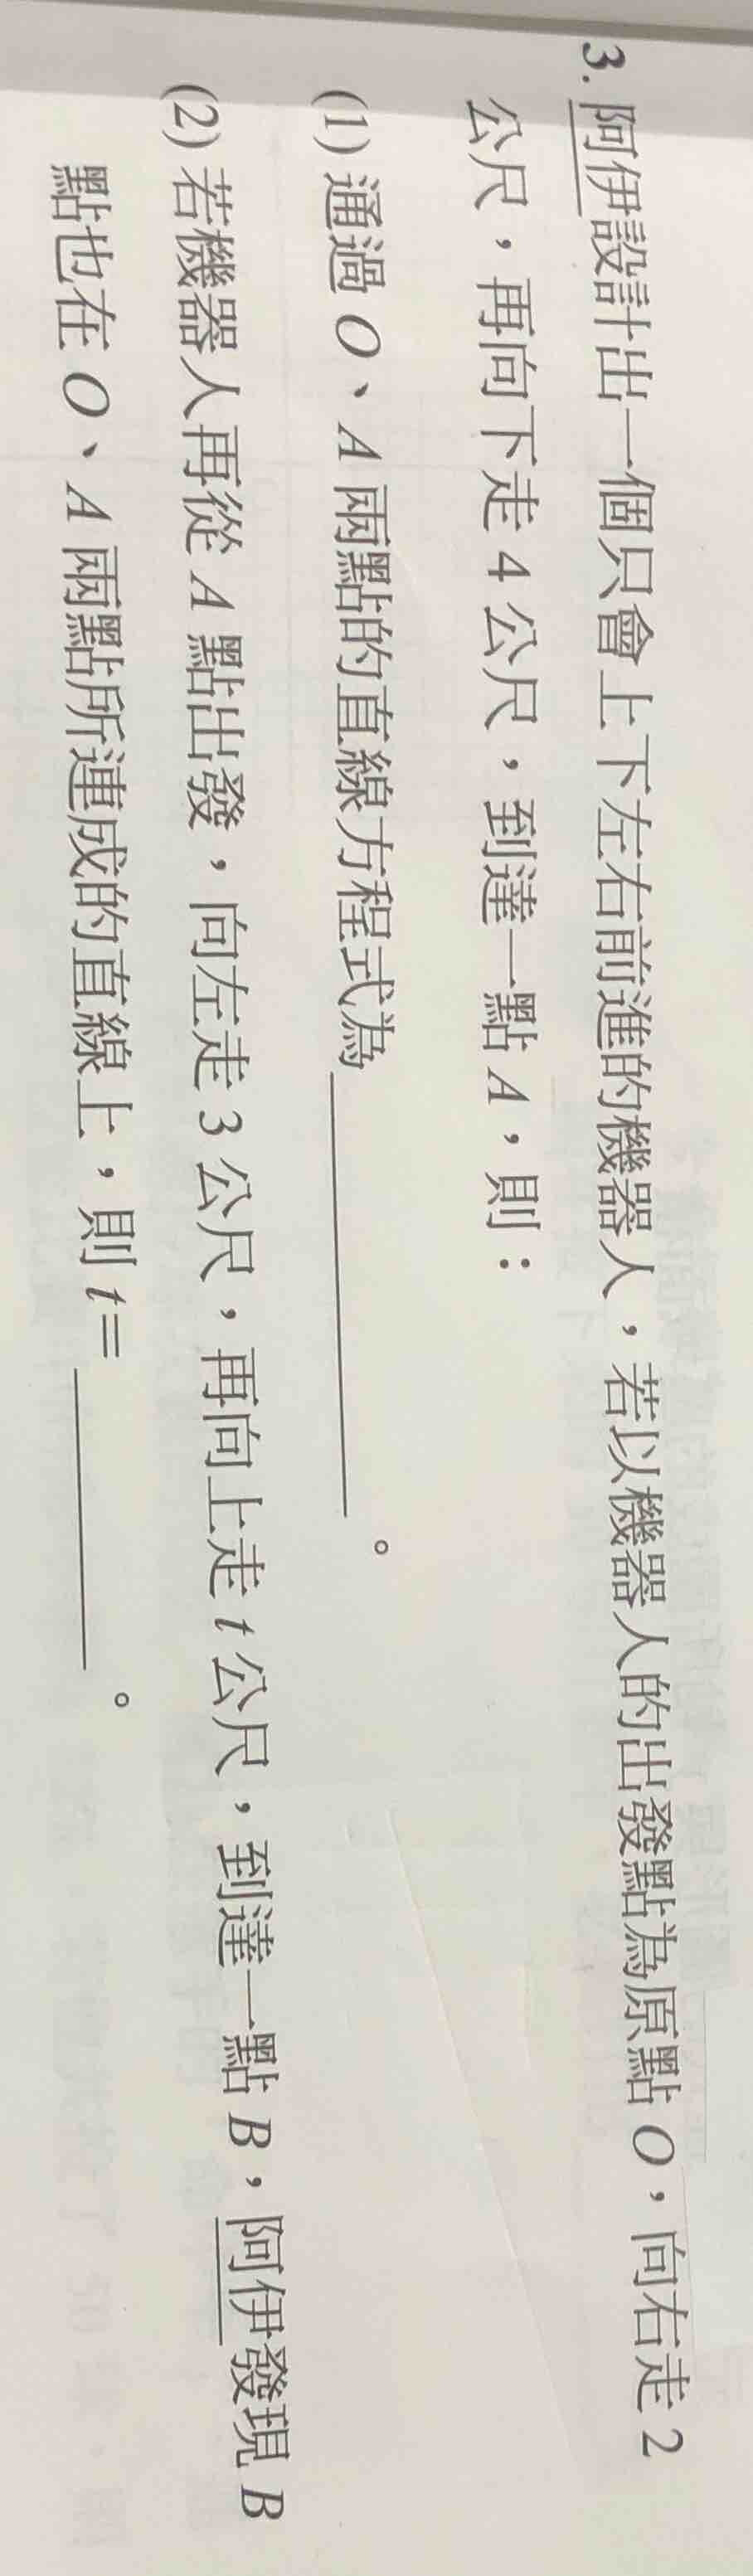 3. 阿伊設計出一個只會上下左右前進的機器人，若以機器人的出發點為原點 O，向右走 2
公尺，再向下走 4 公尺，到達一點 A，則：
(1) 通過 O、A 兩點的直線方程式為________。
(2) 若機器人再從 A 點出發，向左走 3 公尺，再向上走 t 公尺，到達一點 B，阿伊發現 B
點也在 O、A 兩點所連成的直線上，則 t=________。